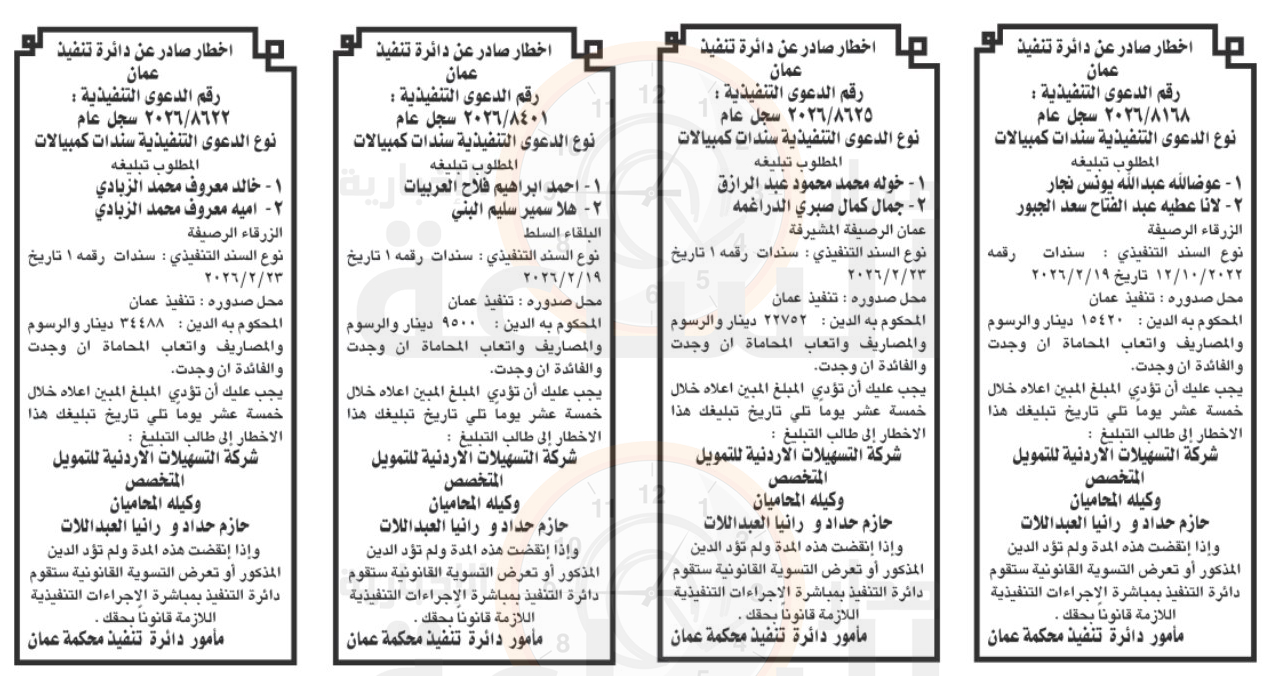 اخطار صادر عن دائرة تنفيذ
عمان
رقم الدعوى التنفيذية :
٢٠٢٦/٨١٦٨ سجل عام
نوع الدعوى التنفيذية سندات كمبيالات
المطلوب تبليغه
١- عوضالله عبدالله يونس نجار
٢- لانا عطيه عبد الفتاح سعد الجبور
الزرقاء الرصيفة
نوع السند التنفيذي : سندات رقمه
١٢/١٠/٢٠٢٢ تاريخ ٢٠٢٦/٢/١٩
محل صدوره : تنفيذ عمان
المحكوم به الدين : ١٥٤٢٠ دينار والرسوم
والمصاريف واتعاب المحاماة ان وجدت
والفائدة ان وجدت.
يجب عليك أن تؤدي المبلغ المبين اعلاه خلال
خمسة عشر يوما تلي تاريخ تبليغك هذا
الاخطار إلى طالب التبليغ :
شركة التسهيلات الاردنية للتمويل
المتخصص
وكيله المحاميان
حازم حداد و رانيا العبداللات
وإذا إنقضت هذه المدة ولم تؤد الدين
المذكور أو تعرض التسوية القانونية ستقوم
دائرة التنفيذ بمباشرة الإجراءات التنفيذية
اللازمة قانوناً بحقك .
مأمور دائرة تنفيذ محكمة عمان
اخطار صادر عن دائرة تنفيذ
عمان
رقم الدعوى التنفيذية :
٢٠٢٦/٨٦٢٥ سجل عام
نوع الدعوى التنفيذية سندات كمبيالات
المطلوب تبليغه
١- خوله محمد محمود عبد الرازق
٢- جمال كمال صبري الدراغمه
عمان الرصيفة المشيرفة
نوع السند التنفيذي : سندات رقمه ١ تاريخ
٢٠٢٦/٢/٢٣
محل صدوره : تنفيذ عمان
المحكوم به الدين : ٢٢٧٥٢ دينار والرسوم
والمصاريف واتعاب المحاماة ان وجدت
والفائدة ان وجدت.
يجب عليك أن تؤدي المبلغ المبين اعلاه خلال
خمسة عشر يوما تلي تاريخ تبليغك هذا
الاخطار إلى طالب التبليغ :
شركة التسهيلات الاردنية للتمويل
المتخصص
وكيله المحاميان
حازم حداد و رانيا العبداللات
وإذا إنقضت هذه المدة ولم تؤد الدين
المذكور أو تعرض التسوية القانونية ستقوم
دائرة التنفيذ بمباشرة الإجراءات التنفيذية
اللازمة قانوناً بحقك .
مأمور دائرة تنفيذ محكمة عمان
اخطار صادر عن دائرة تنفيذ
عمان
رقم الدعوى التنفيذية :
٢٠٢٦/٨٤٠١ سجل عام
نوع الدعوى التنفيذية سندات كمبيالات
المطلوب تبليغه
١- احمد ابراهيم فلاح العربيات
٢- هلا سمير سليم البني
البلقاء السلط
نوع السند التنفيذي : سندات رقمه ١ تاريخ
٢٠٢٦/٢/١٩
محل صدوره : تنفيذ عمان
المحكوم به الدين : ٩٥٠٠ دينار والرسوم
والمصاريف واتعاب المحاماة ان وجدت
والفائدة ان وجدت.
يجب عليك أن تؤدي المبلغ المبين اعلاه خلال
خمسة عشر يوما تلي تاريخ تبليغك هذا
الاخطار إلى طالب التبليغ :
شركة التسهيلات الاردنية للتمويل
المتخصص
وكيله المحاميان
حازم حداد و رانيا العبداللات
وإذا إنقضت هذه المدة ولم تؤد الدين
المذكور أو تعرض التسوية القانونية ستقوم
دائرة التنفيذ بمباشرة الإجراءات التنفيذية
اللازمة قانوناً بحقك .
مأمور دائرة تنفيذ محكمة عمان
اخطار صادر عن دائرة تنفيذ
عمان
رقم الدعوى التنفيذية :
٢٠٢٦/٨٦٢٢ سجل عام
نوع الدعوى التنفيذية سندات كمبيالات
المطلوب تبليغه
١- خالد معروف محمد الزبادي
٢- اميه معروف محمد الزبادي
الزرقاء الرصيفة
نوع السند التنفيذي : سندات رقمه ١ تاريخ
٢٠٢٦/٢/٢٣
محل صدوره : تنفيذ عمان
المحكوم به الدين : ٣٤٤٨٨ دينار والرسوم
والمصاريف واتعاب المحاماة ان وجدت
والفائدة ان وجدت.
يجب عليك أن تؤدي المبلغ المبين اعلاه خلال
خمسة عشر يوما تلي تاريخ تبليغك هذا
الاخطار إلى طالب التبليغ :
شركة التسهيلات الاردنية للتمويل
المتخصص
وكيله المحاميان
حازم حداد و رانيا العبداللات
وإذا إنقضت هذه المدة ولم تؤد الدين
المذكور أو تعرض التسوية القانونية ستقوم
دائرة التنفيذ بمباشرة الإجراءات التنفيذية
اللازمة قانوناً بحقك .
مأمور دائرة تنفيذ محكمة عمان